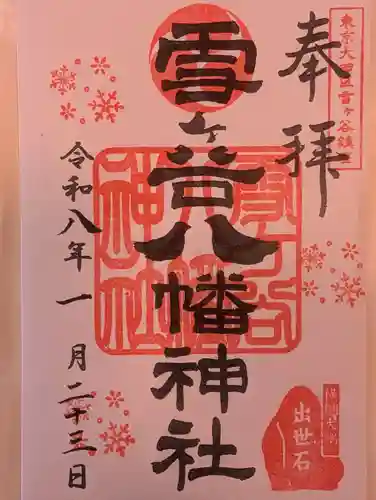 東京大田区雪ヶ谷鎮
奉拝
雪ヶ谷八幡神社
雪ヶ谷
八幡
神社
令和八年一月二十三日
出世石